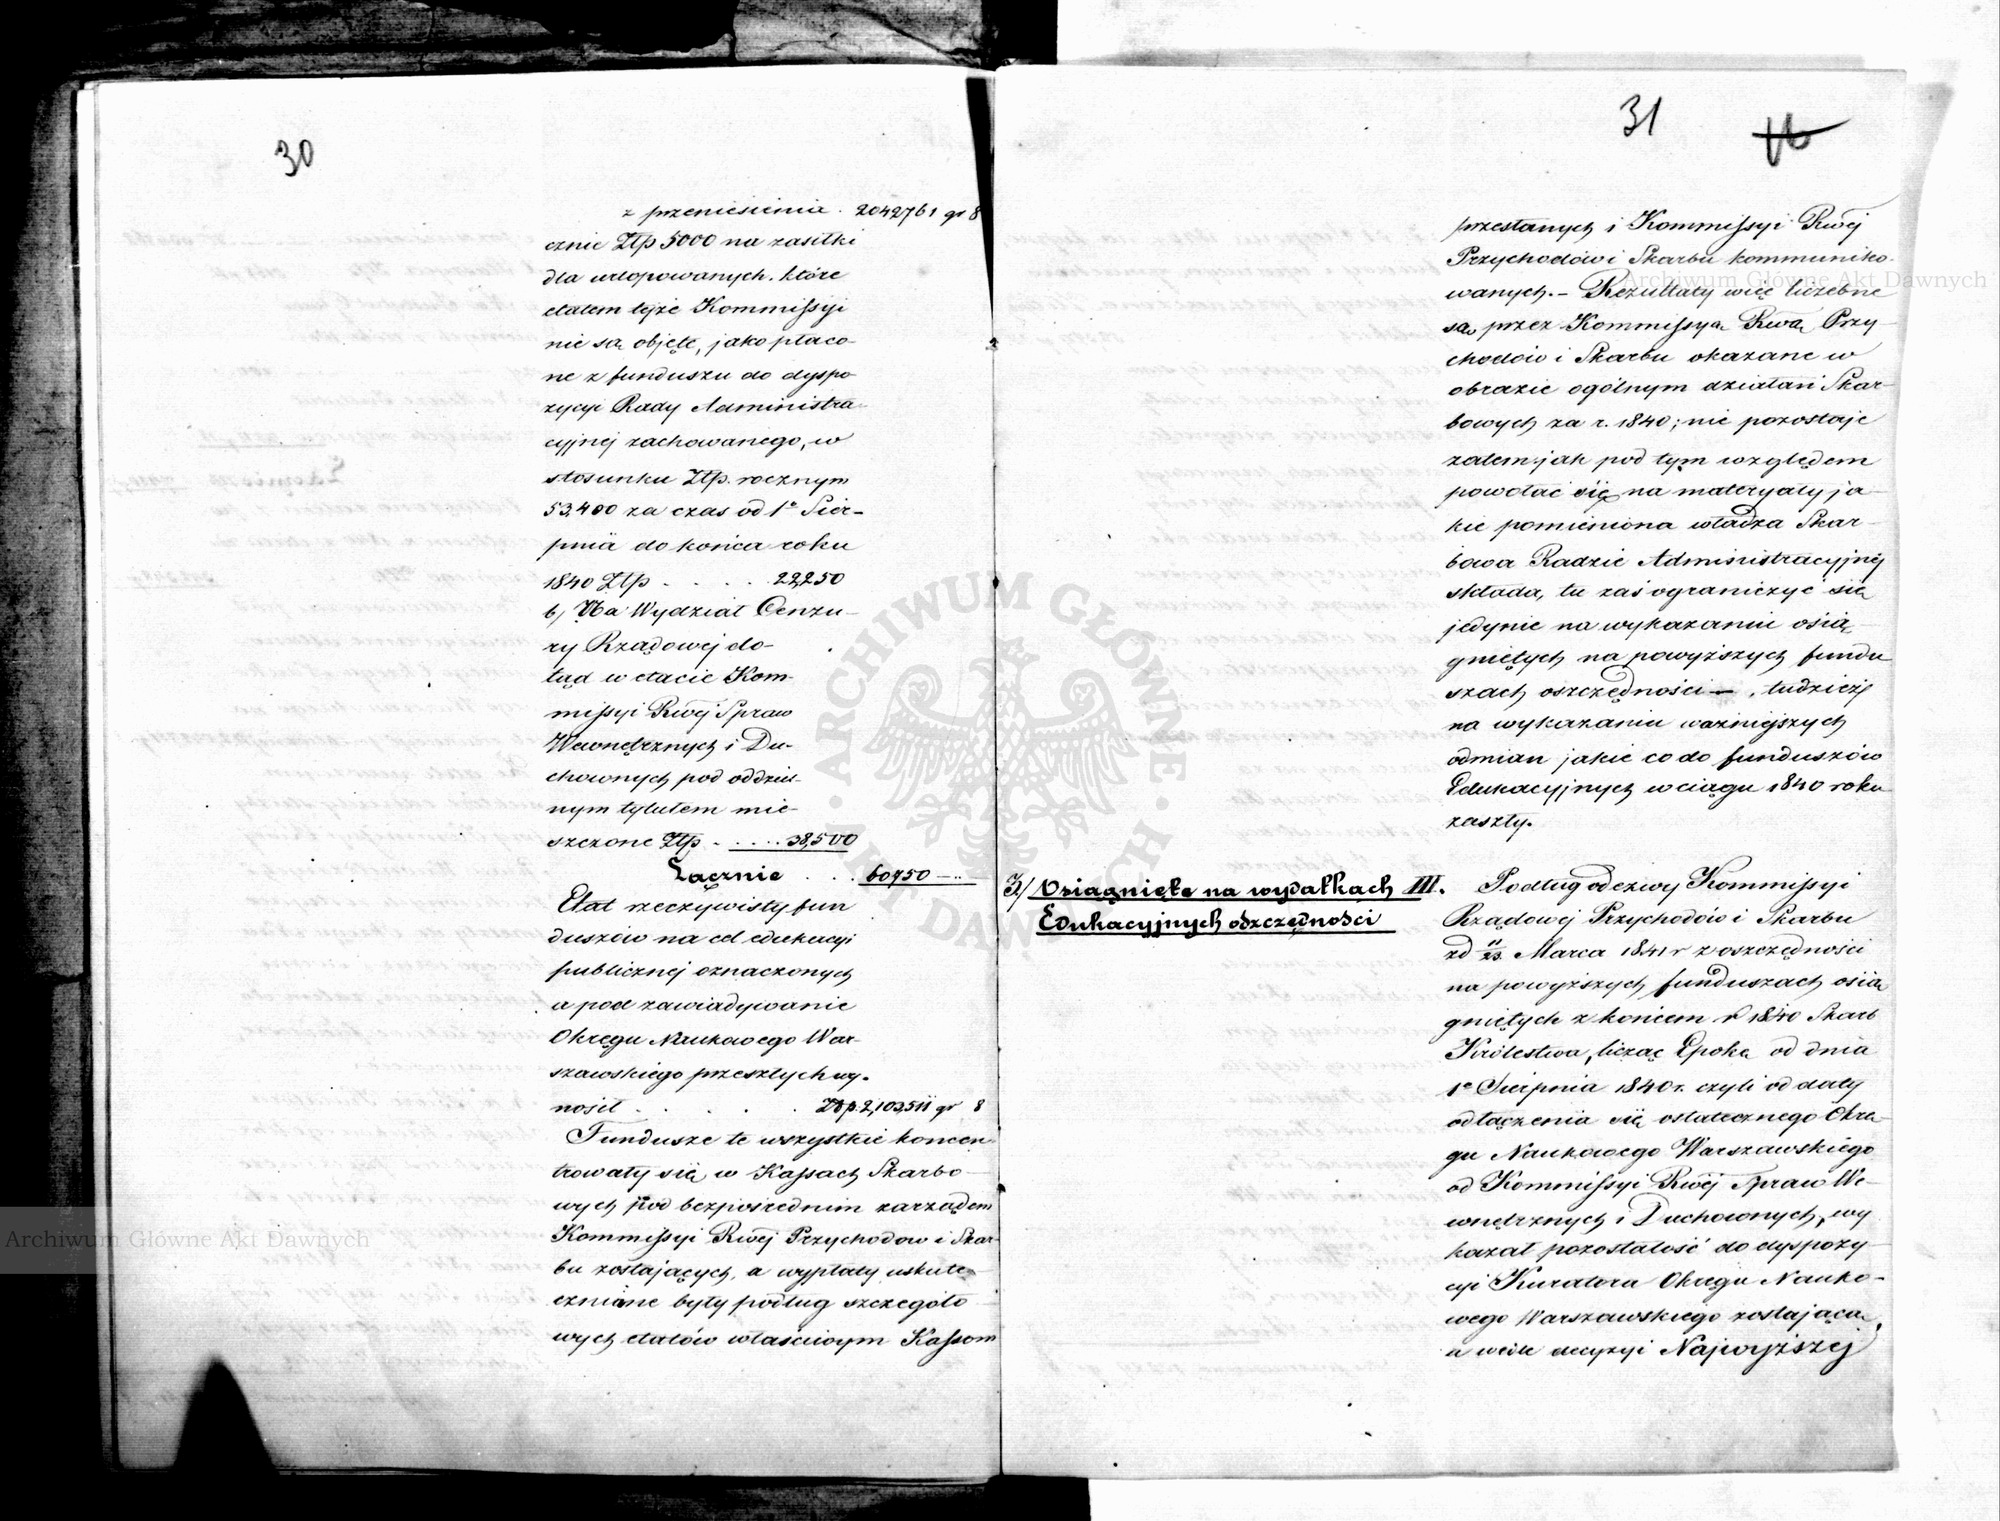 30
z przeniesienia . 2042761 gr 8
cznie Złp 5000 na zasiłki
dla urlopowanych, które
etatem tejże Kommissyi
nie są objęte, jako płaco-
ne z funduszu do dyspo
zycyi Rady Administra
cyjnej zachowanego, w
stosunku Złp. rocznym
53,400 za czas od 1º Sier-
pnia do końca roku
1840 Złp . . . . 22,250
b) Na Wydział Cenzu-
ry Rządowej do-
tąd w etacie Kom-
missyi Rwéj Spraw
Wewnętrznych i Du-
chownych pod oddziel-
nym tytułem mie-
szczone Złp . . . . . 38,500
Łącznie . . . 60750 — ..
Etat rzeczywisty fun
duszów na cel edukacyi
publicznej oznaczonych
a pod zawiadywanie
Okręgu Naukowego War-
szawskiego przeszłych wy-
nosił . . . . . Złp. 2,103,511 gr 8
Fundusze te wszystkie koncen
trowały się w Kassach Skarbo
wych pod bezpośrednim zarządem
Kommissyi Rwéj Przychodów i Skar
bu zostających, a wypłaty uskute
cznione były podług szczegóło
wych etatów właściwym Kassom
31
przesłanych i Kommissyi Rwéj
Przychodów i Skarbu kommuniko-
wanych. – Rezultaty więc liczebne
są przez Kommissyą Rwą Przy
chodów i Skarbu okazane w
obrazie ogólnym działań Skar-
bowych za r. 1840; nie pozostaje
zatem jak pod tym względem
powołać się na materyały ja
kie pomieniona władza Skar
bowa Radzie Administracyjnéj
składa, tu zaś ograniczyć się
jedynie na wykazaniu osią
gniętych na powyższych fundu
szach oszczędności –, tudzież
na wykazaniu ważniejszych
odmian jakie co do funduszów
Edukacyjnych w ciągu 1840 roku
zaszły.
3) Osiągnięte na wydatkach III.
Edukacyjnych oszczędności
Podług odezwy Kommissyi
Rządowej Przychodów i Skarbu
zd 11/23 Marca 1841 r z oszczędności
na powyższych funduszach osią
gniętych z końcem r 1840 Skarb
Królestwa, licząc Epokę od dnia
1º Sierpnia 1840 r. czyli od daty
odłączenia się ostatecznego Okrę
gu Naukowego Warszawskiego
od Kommissyi Rwéj Spraw We-
wnętrznych i Duchownych, wy
kazał pozostałość do dyspozy-
cyi Kuratora Okręgu Nauko-
wego Warszawskiego zostającą,
a wedle decyzyi Najwyższéj
ARCHIWUM GŁÓWNE AKT DAWNYCH
Archiwum Główne Akt Dawnych
Archiwum Główne Akt Dawnych